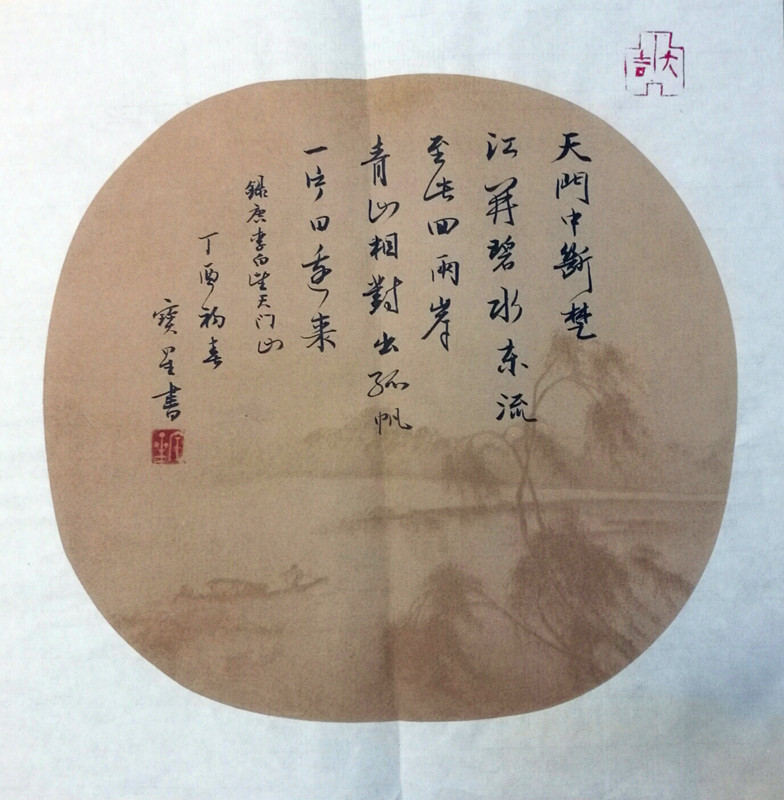 天門中斷楚
江開碧水东流
至此回兩岸
青山相對出孤帆
一片日邊来
録唐李白望天门山
丁酉初春
寶星書